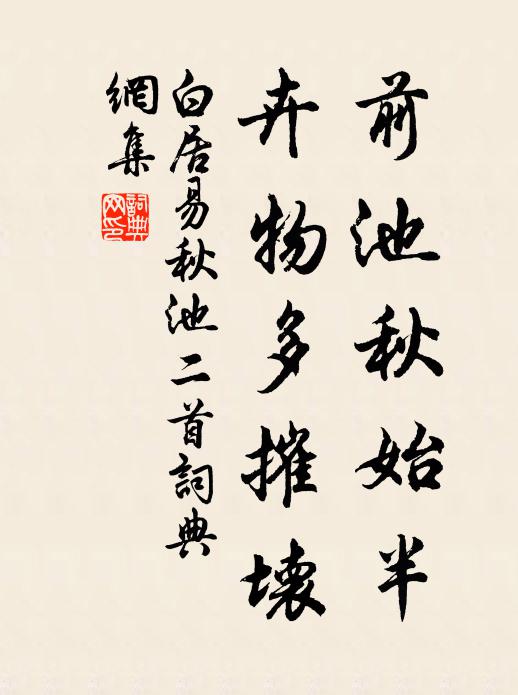 前池秋始半
卉物多摧壞
白居易秋池二首詞典
網集
詞典
网印